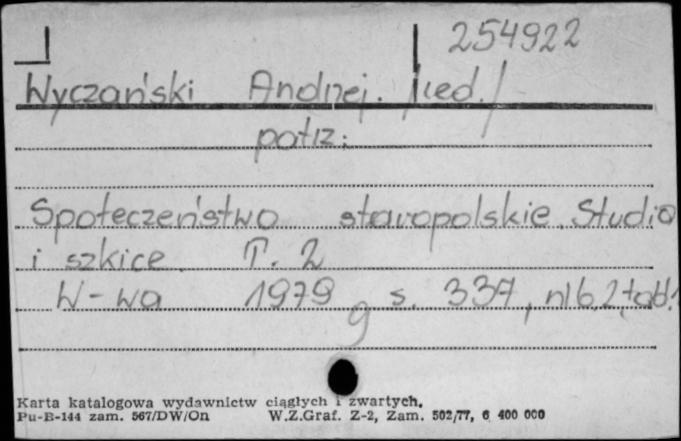 254922
Wyczański Andrzej. /red./
patrz:
Społeczeństwo staropolskie. Studia
i szkice. T. 2
W-wa 1979 s. 337, nlb. 2, tabl. 1
g
Karta katalogowa wydawnictw ciągłych i zwartych.
Pu-B-144 zam. 567/DW/On W.Z.Graf. Z-2, Zam. 502/77, 6 400 000